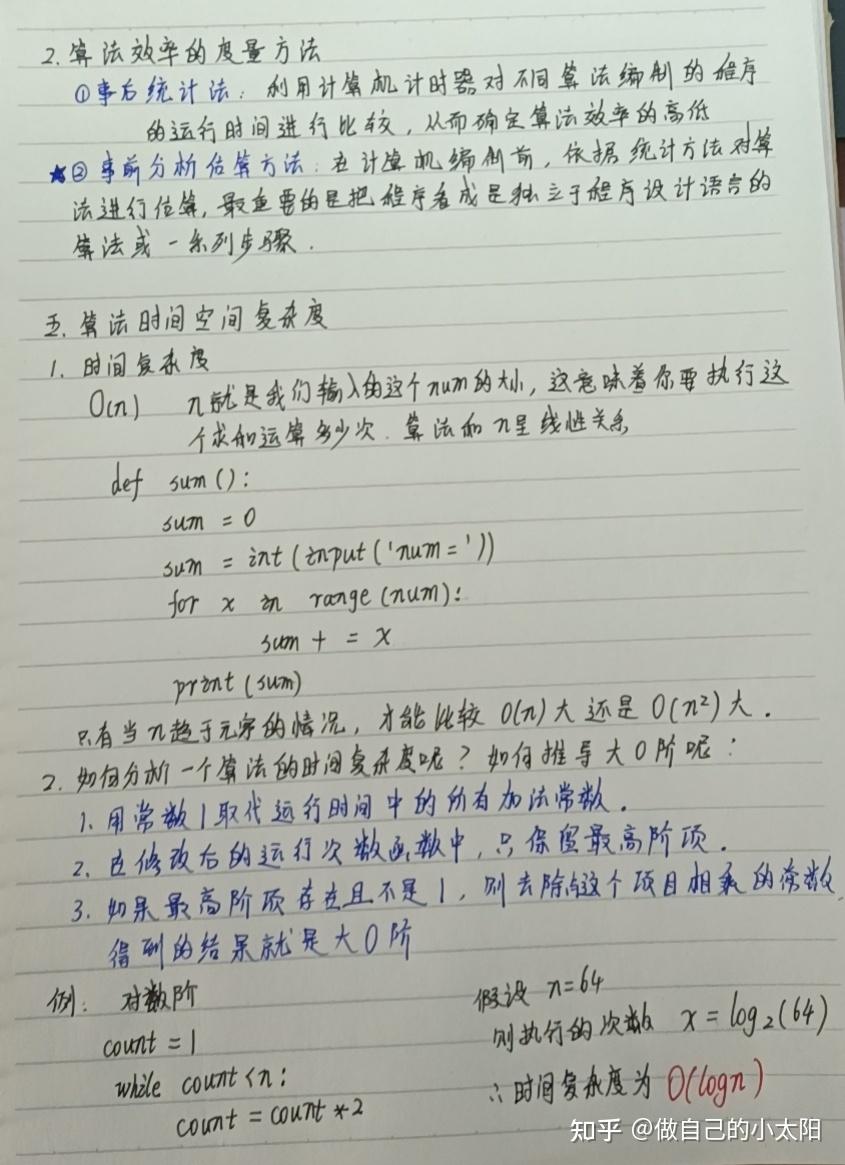 2. 算法效率的度量方法
①事后统计法：利用计算机计时器对不同算法编制的程序
的运行时间进行比较，从而确定算法效率的高低
★② 事前分析估算方法：在计算机编制前，依据统计方法对算
法进行估算，最重要的是把程序看成是独立于程序设计语言的
算法或一系列步骤.
五. 算法时间空间复杂度
1. 时间复杂度
O(n) n就是我们输入的这个num的大小，这意味着你要执行这
个求和运算多少次. 算法和n呈线性关系
def sum():
sum = 0
sum = int(input('num='))
for x in range(num):
sum + = x
print(sum)
只有当n趋于无穷的情况，才能比较 O(n)大还是O(n²)大.
2. 如何分析一个算法的时间复杂度呢？如何推导大O阶呢：
1. 用常数1取代运行时间中的所有加法常数.
2. 在修改后的运行次数函数中，只保留最高阶项.
3. 如果最高阶项存在且不是1，则去除与这个项目相乘的常数，
得到的结果就是大O阶
例： 对数阶
count = 1
while count < n:
count = count *2
假设 n=64
则执行的次数 x = log₂(64)
∴时间复杂度为 O(logn)
知乎 @做自己的小太阳